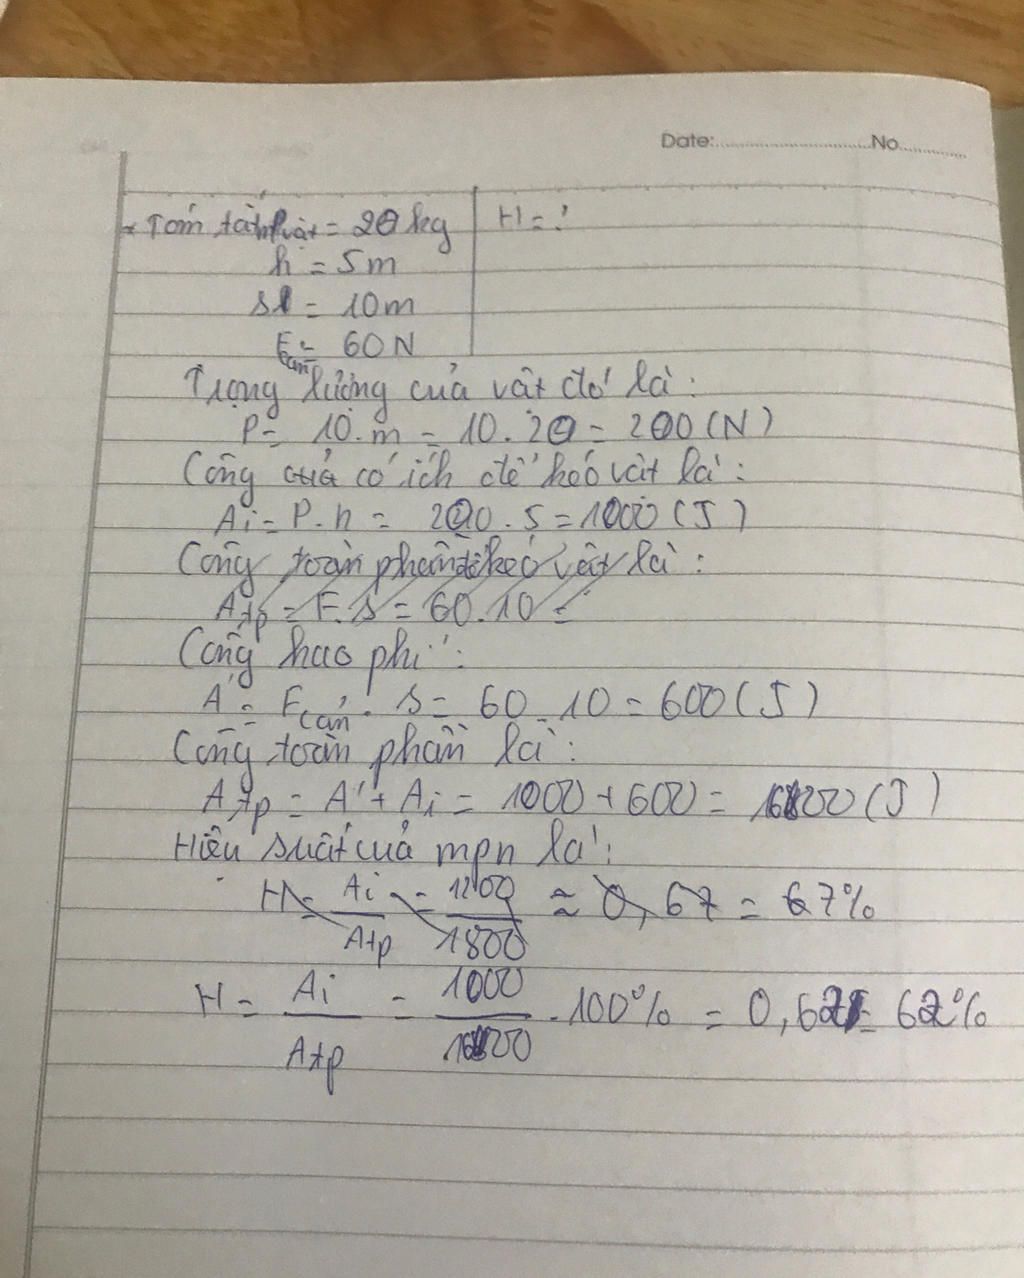 Date:..............................No...............
* Tóm tắt: mvật = 20 kg
H = ?
h = 5m
sl = 10m
Fcản = 60N
Trọng lượng của vật đó là:
P = 10.m = 10.20 = 200(N)
Công của có ích để kéo vật là:
Ai = P.h = 200.5 = 1000(J)
Công toàn phần để kéo vật là:
Atp = F.s = 60.10 =
Công hao phí:
A' = Fcản . s = 60.10 = 600(J)
Công toàn phần là:
Atp = A' + Ai = 1000 + 600 = 1600(J)
Hiệu suất của mpn là:
H = Ai/Atp = 1200/1800 ≈ 0,67 = 67%
H = Ai/Atp = 1000/1600 . 100% = 0,62 = 62%